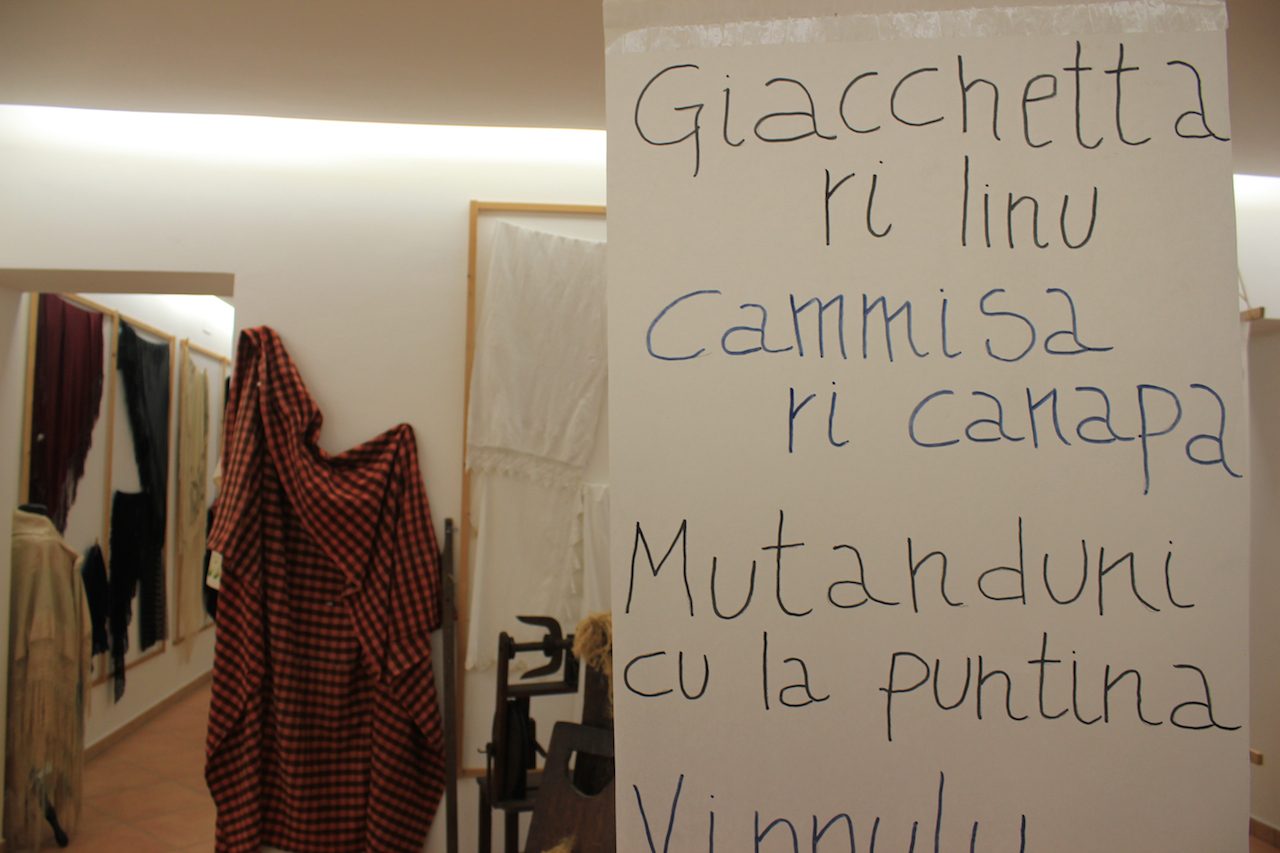 Giacchetta
ri linu
Cammisa
ri canapa
Mutanduni
cu la puntina